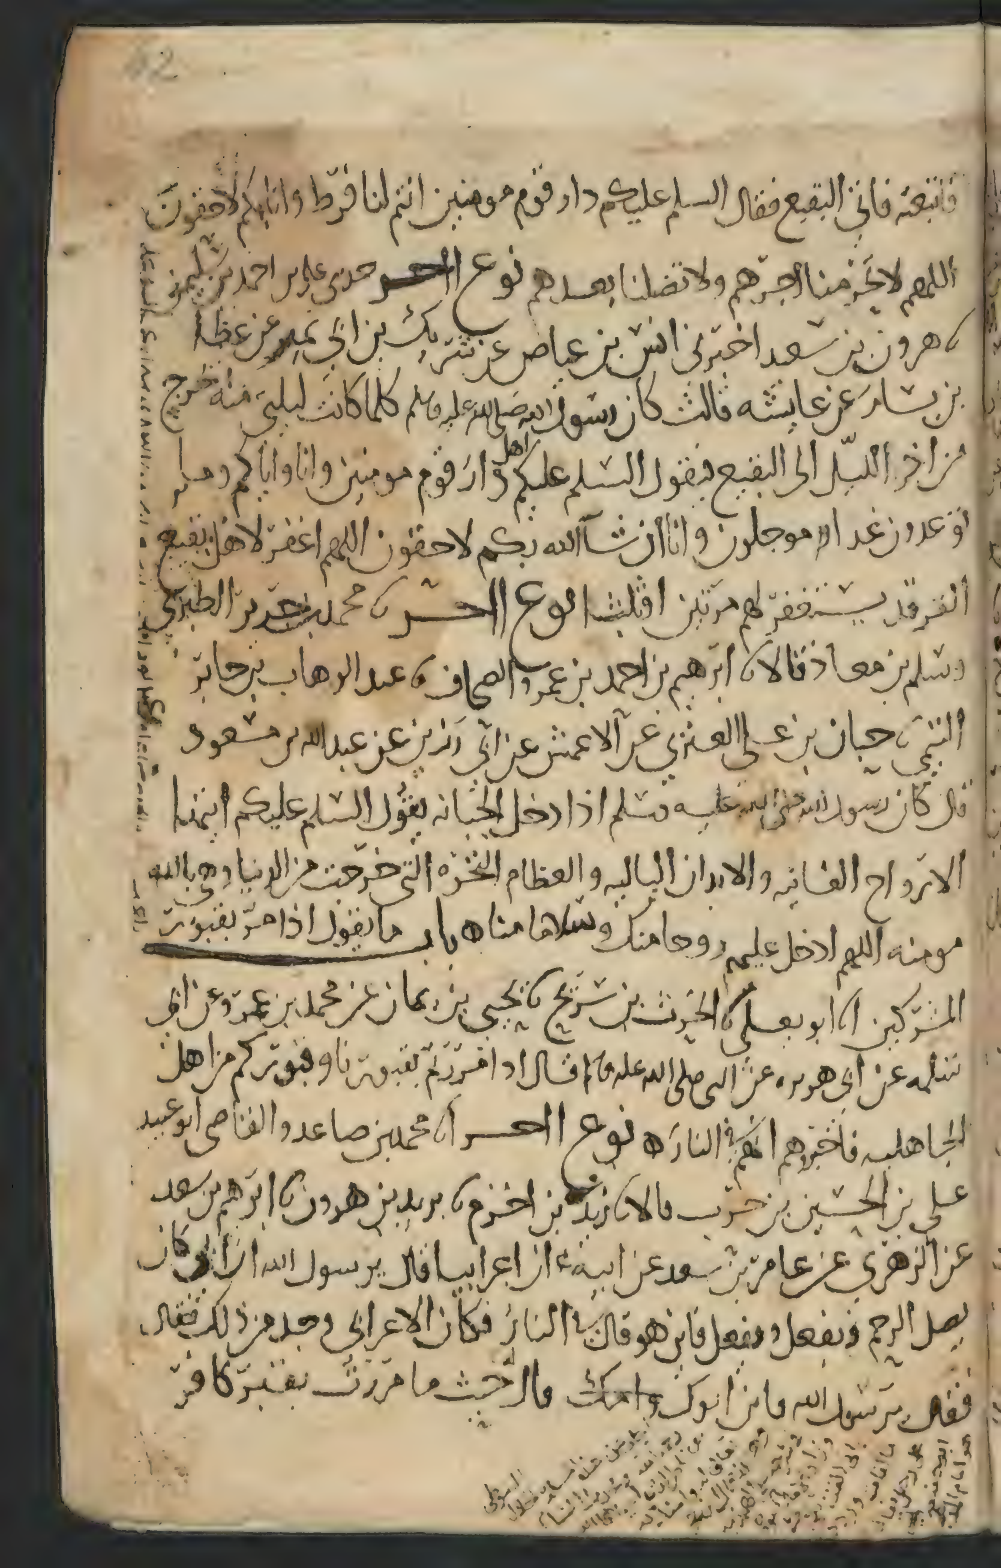 42
فاتبعته فاتى البقيع فقال السلم عليكم دار قوم مومنين انتم لنا فرط وانا بكم لاحقون
اللهم لا تحرمنا اجرهم ولا تضلنا بعدهم نوع اخر حدثني علي بن احمد بن سليمن
هرون بن سعد اخبرني انس بن عياض عن شريك بن ابي نمر عن عطا
بن يسار عن عايشه قالت كان رسول الله صلى الله عليه وسلم كلما كانت ليلتي منه خرج
من اخر الليل الى البقيع فيقول السلم عليكم اهل دار قوم مومنين وانا واياكم وما
توعدون غدا موجلون وانا ان شآ الله بكم لاحقون اللهم اغفر لاهل بقيع
الغرقد يستغفر لهم مرتين او ثلثا نوع اخر محمد بن جرير الطبري
وسلم بن معاذ قالا ابرهيم بن احمد بن عمرو الصحاف عبد الوهاب بن جابر
التيمي حبان بن علي العنزي عن الاعمش عن ابي رزين عن عبد الله بن مسعود
قال كان رسول الله صلى الله عليه وسلم اذا دخل الجبانه يقول السلم عليكم ايتها
الارواح الفانيه والابدان الباليه والعظام النخره التي خرجت من الدنيا وهي بالله
مومنه اللهم ادخل عليهم روحا منك وسلاما منا باب ما يقول اذا مر بقبور
المشركين ابو يعلى الحرث بن سريج يحيى بن يمان عن محمد بن عمرو عن ابي
سلمه عن ابي هريره عن النبي صلى الله عليه وسلم قال اذا مررتم بقبورنا وقبوركم من اهل
الجاهليه فاخبروهم انهم في النار نوع اخر محمد بن صاعد والقاضي ابو عبيد
علي بن الحسين بن حرب قالا زيد بن اخزم يزيد بن هرون ابرهيم بن سعد
عن الزهري عن عامر بن سعد عن ابيه ان اعرابيا قال يرسول الله ان ابي كان
يصل الرحم ويفعل ويفعل فاين هو قال في النار فكان الاعرابي وجد من ذلك فقال
فقال يرسول الله فاين ابوك قال حيث ما مررت بقبر كافر